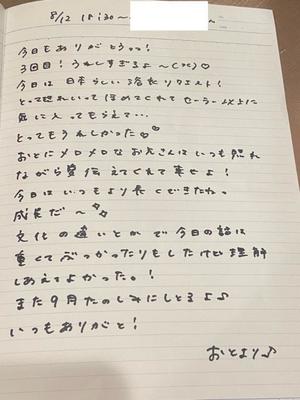 8/12 18:30〜
今日もありがとうっ!
3回目!うれしすぎるよ〜(><)♡
今日は日本らしい浴衣リクエスト!
とっても
いって ほめてくれてセーラー以上に
気に入ってもらえて…
とってもうれしかった♡♡
おとにメロメロなお兄さんはいつも照れ
ながら愛伝えてくれて幸せよ!
今日はいつもより長くできたねっ
成長だ〜✨
文化の違いとかで今日の話は
重くてぶつかったりもしたけど理解
しあえてよかった。!
また9月たのしみにしとるよ♪
いつもありがと!
おとより♪